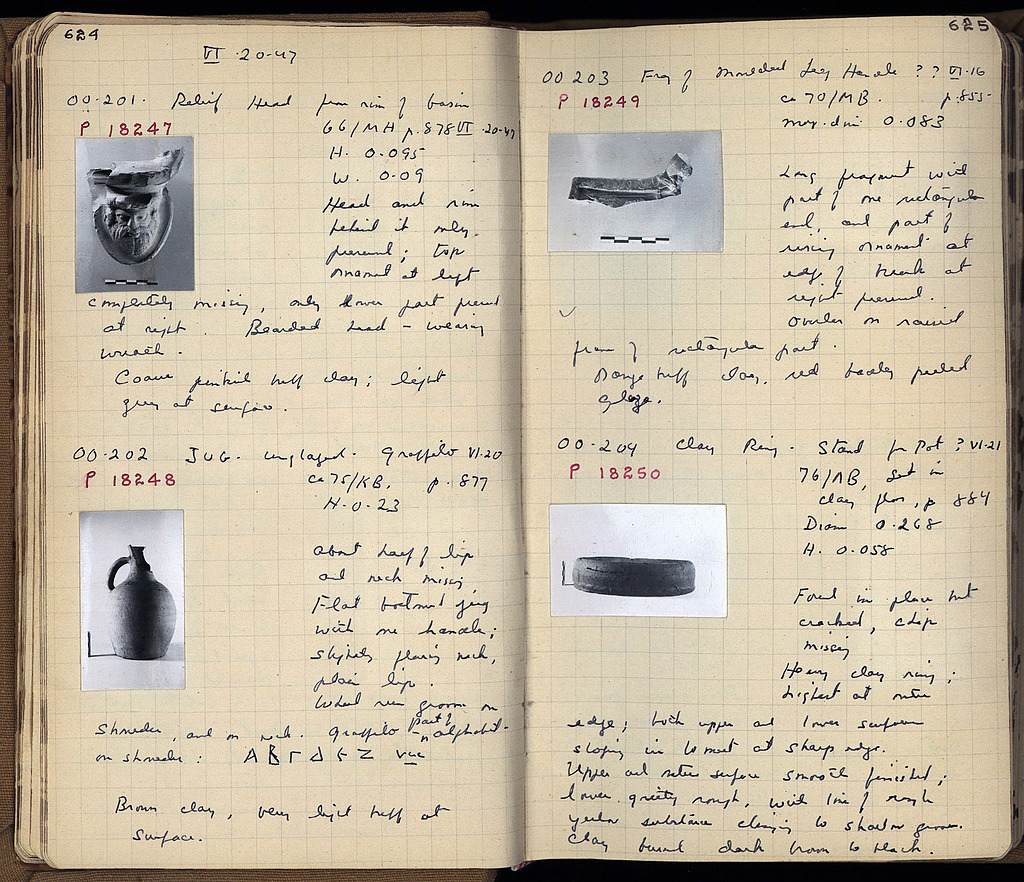 624
VI · 20-47
OO·201. Relief Head from rim of basin
P 18247
66/MH p. 878 VI ·20-47
H. 0.095
W. 0.09
Head and rim
behind it only
preserved; top
ornament at left
completely missing, only lower part preserved
at right. Bearded head – wearing
wreath.
Coarse pinkish buff clay; light
grey at surface.
OO·202 JUG. unglazed. Graffito VI·20
P 18248
ca 75/KB. p. 877
H. 0.23
About half of lip
and neck missing
Flat bottomed jug
with one handle;
slightly flaring neck,
plain lip.
Wheel run groove on
shoulder, and on neck. Graffito part of
alphabet
on shoulder: Α Β Γ Δ Ε Ζ vac
Brown clay, very light buff at
surface.
625
OO·203 Frag of Moulded Handle ?? VI·16
P 18249
ca 70/MB. p. 855
max. dim 0.083
Long fragment with
part of one rectangular
end, and part of
rising ornament at
edge of break at
right preserved.
on raised
frame of rectangular part.
Orange buff clay, red badly peeled
glaze.
OO·204 Clay Ring. Stand for Pot? VI·21
P 18250
76/ΛB, set in
clay floor, p 884
Diam 0.268
H. 0.058
Found in place but
cracked, chip
missing
Heavy clay ring;
highest at outer
edge; both upper and lower surfaces
sloping in to meet at sharp edge.
Upper and outer surface smooth finished;
lower, gritty rough, with line of rough
yellow substance clinging to shallow groove.
Clay burned dark brown to black.